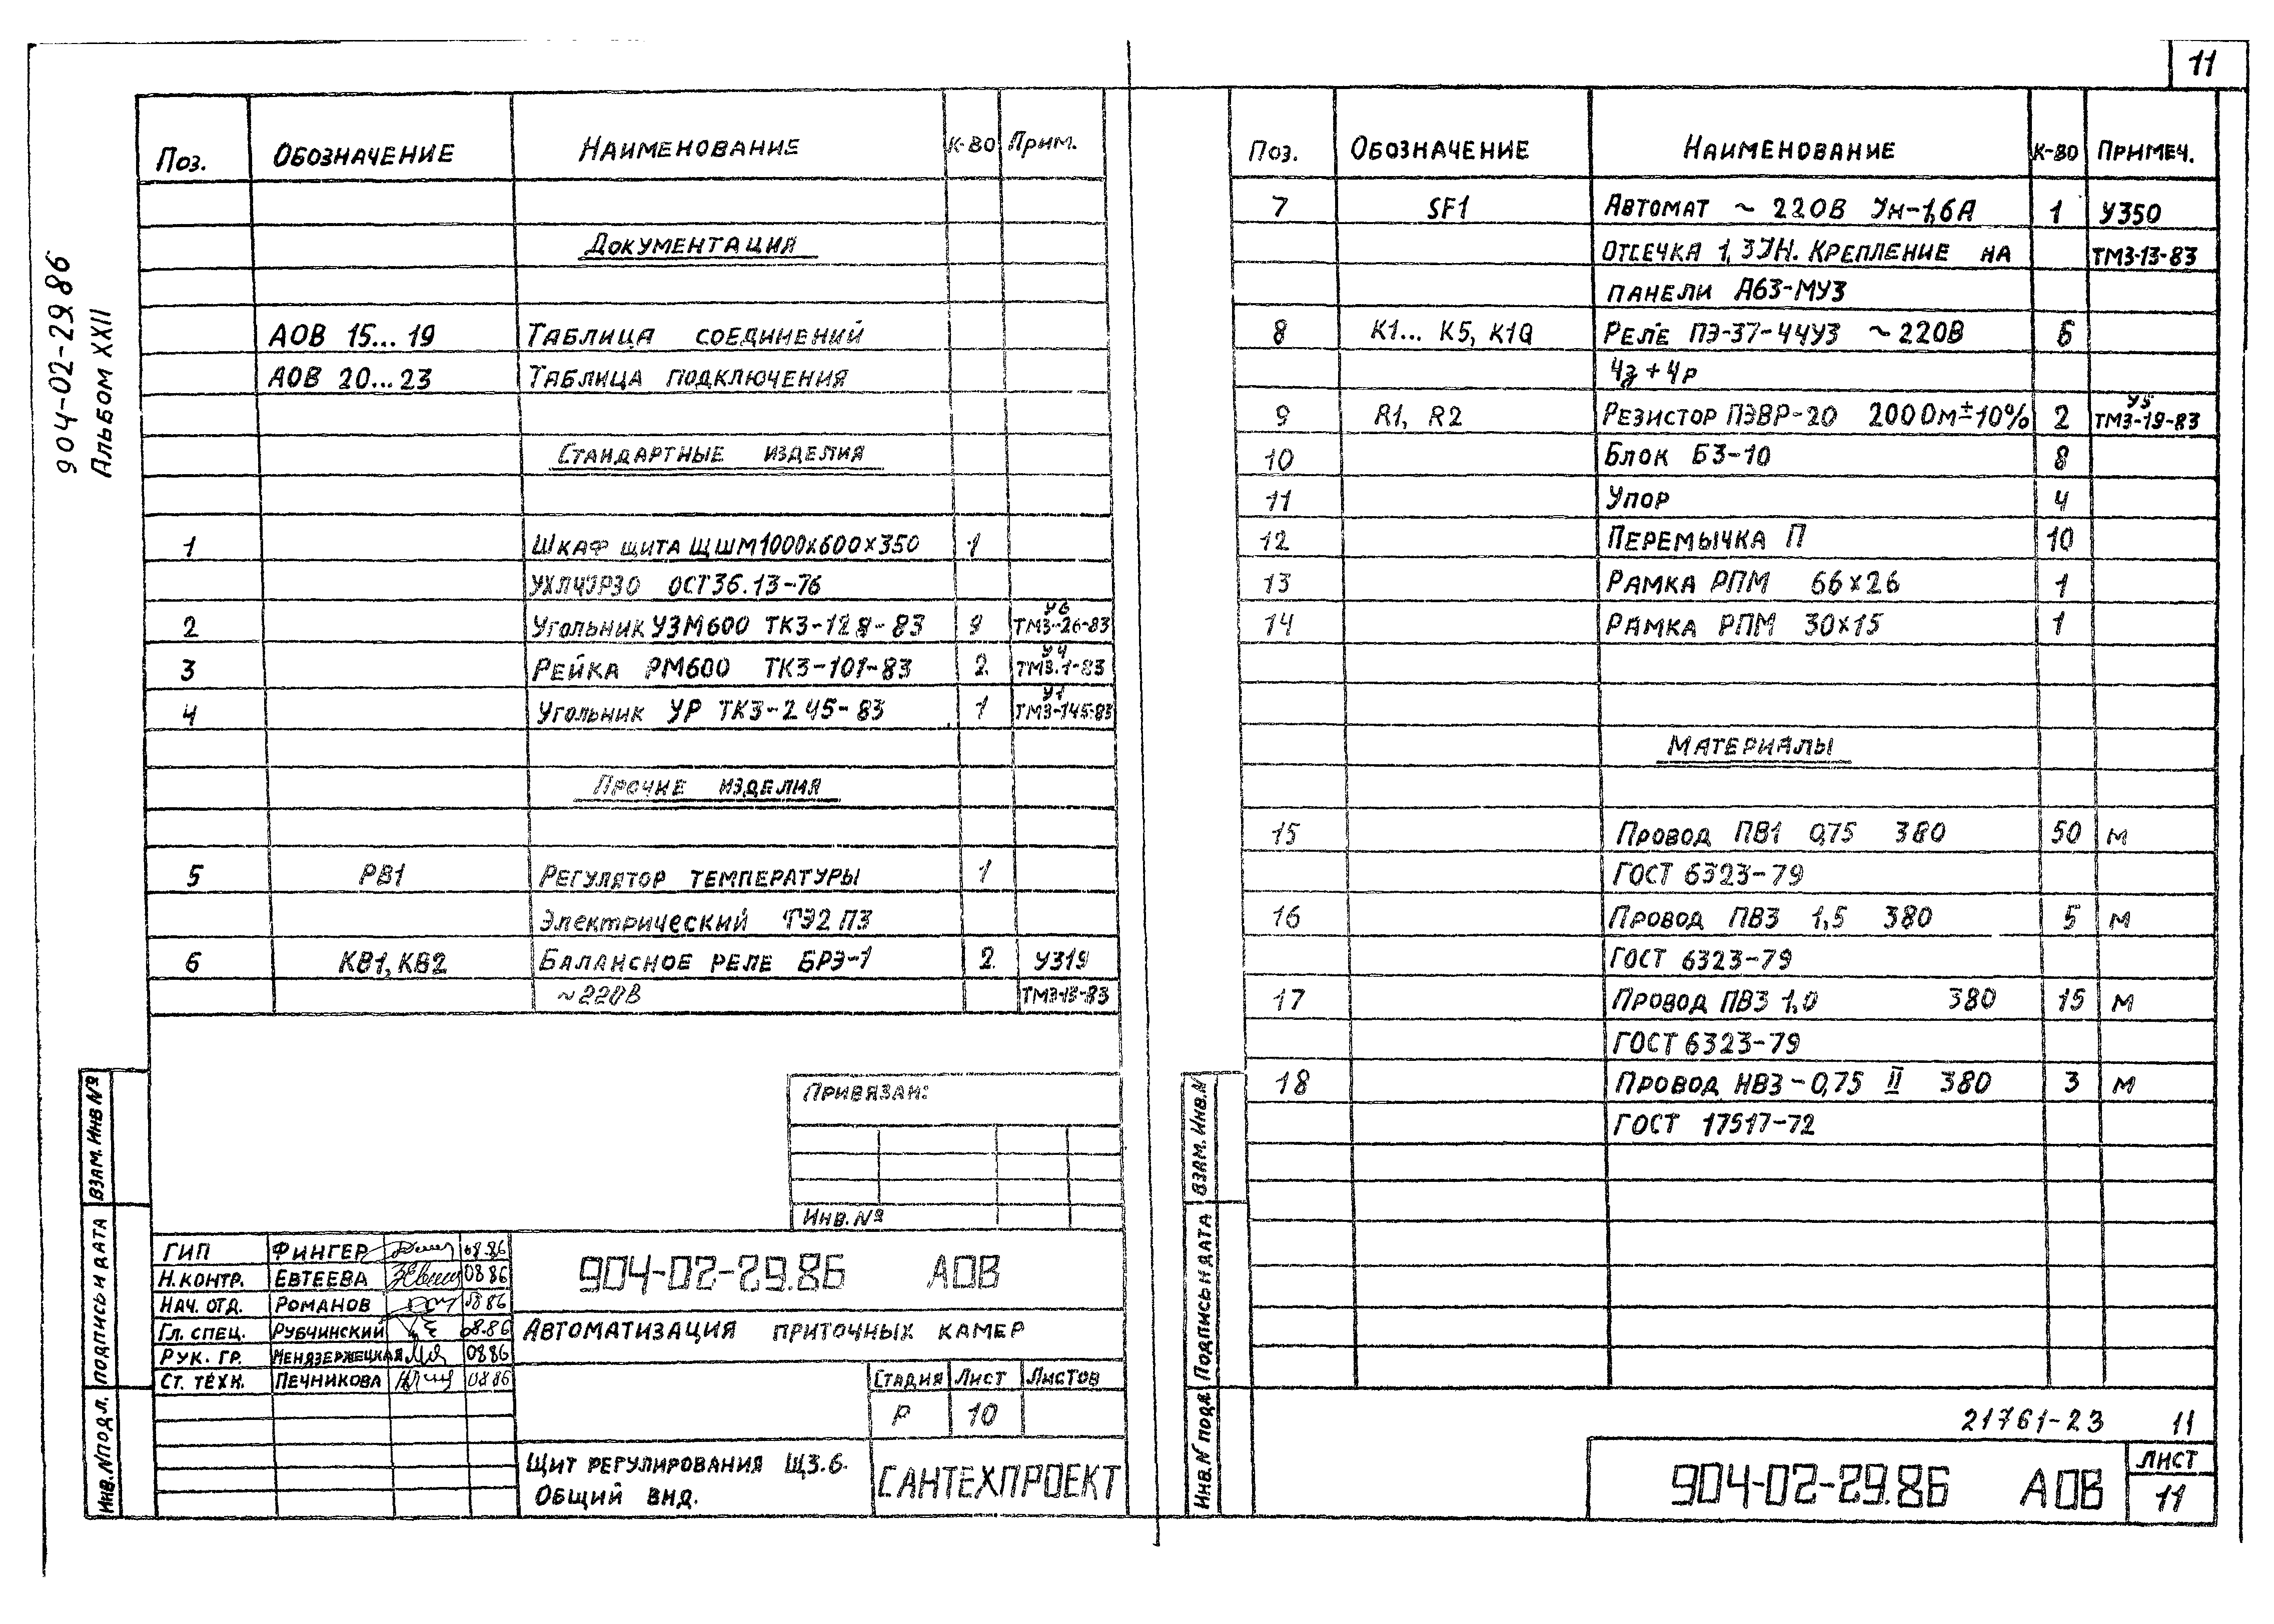 11
904-02-29.86
Альбом XXII
Поз. Обозначение Наименование К-во Прим.
Документация
АОВ 15...19 Таблица соединений
АОВ 20...23 Таблица подключения
Стандартные изделия
1 Шкаф щита ЩШМ1000х600х350 1
ОСТ36.13-76
У6
2 Угольник УЗМ600 ТК3-128-83 ТМ3-26-83
У4
3 Рейка РМ600 ТК3-101-83 2 ТМ3.1-83
У7
4 Угольник УР ТК3-245-83 1 ТМ3-145-83
Прочие изделия
5 РВ1 Регулятор температуры 1
электрический ТЭ2П3
6 КВ1, КВ2 Балансное реле БРЭ-1 2 У319
~220В ТМ3-13-83
Привязан:
Инв. №
ГИП Фингер 08.86
Н. контр. Евтеева 08.86
Нач. отд. Романов 08.86
Гл. спец. Рубчинский 08.86
Рук. гр. Мендзержецкая 08.86
Ст. техн. Печникова 08.86
904-02-29.86 АОВ
Автоматизация приточных камер
Стадия Лист Листов
Р 10
Щит регулирования Щ3.6.
Общий вид.
САНТЕХПРОЕКТ
Взам. инв №
Подпись и дата
Инв. № подл.
Поз. Обозначение Наименование К-во Примеч.
7 SF1 Автомат ~ 220В Ун-1,6А 1 У350
Отсечка 1,3Ун. Крепление на ТМ3-13-83
панели А63-МУ3
8 К1... К5, К10 Реле ПЭ-37-44У3 ~220В 6
4з + 4р
У5
9 R1, R2 Резистор ПЭВР-20 200Ом±10% 2 ТМ3-19-83
10 Блок БЗ-10 8
11 Упор 4
12 Перемычка П 10
13 Рамка РПМ 66х26 1
14 Рамка РПМ 30х15 1
Материалы
15 Провод ПВ1 0,75 380 50 м
ГОСТ 6323-79
16 Провод ПВ3 1,5 380 5 м
ГОСТ 6323-79
17 Провод ПВ3 1,0 380 15 м
ГОСТ 6323-79
18 Провод НВ3-0,75 II 380 3 м
ГОСТ 17517-72
Взам. инв. N
Подпись и дата
Инв. N подл
21761-23 11
904-02-29.86 АОВ
Лист
11